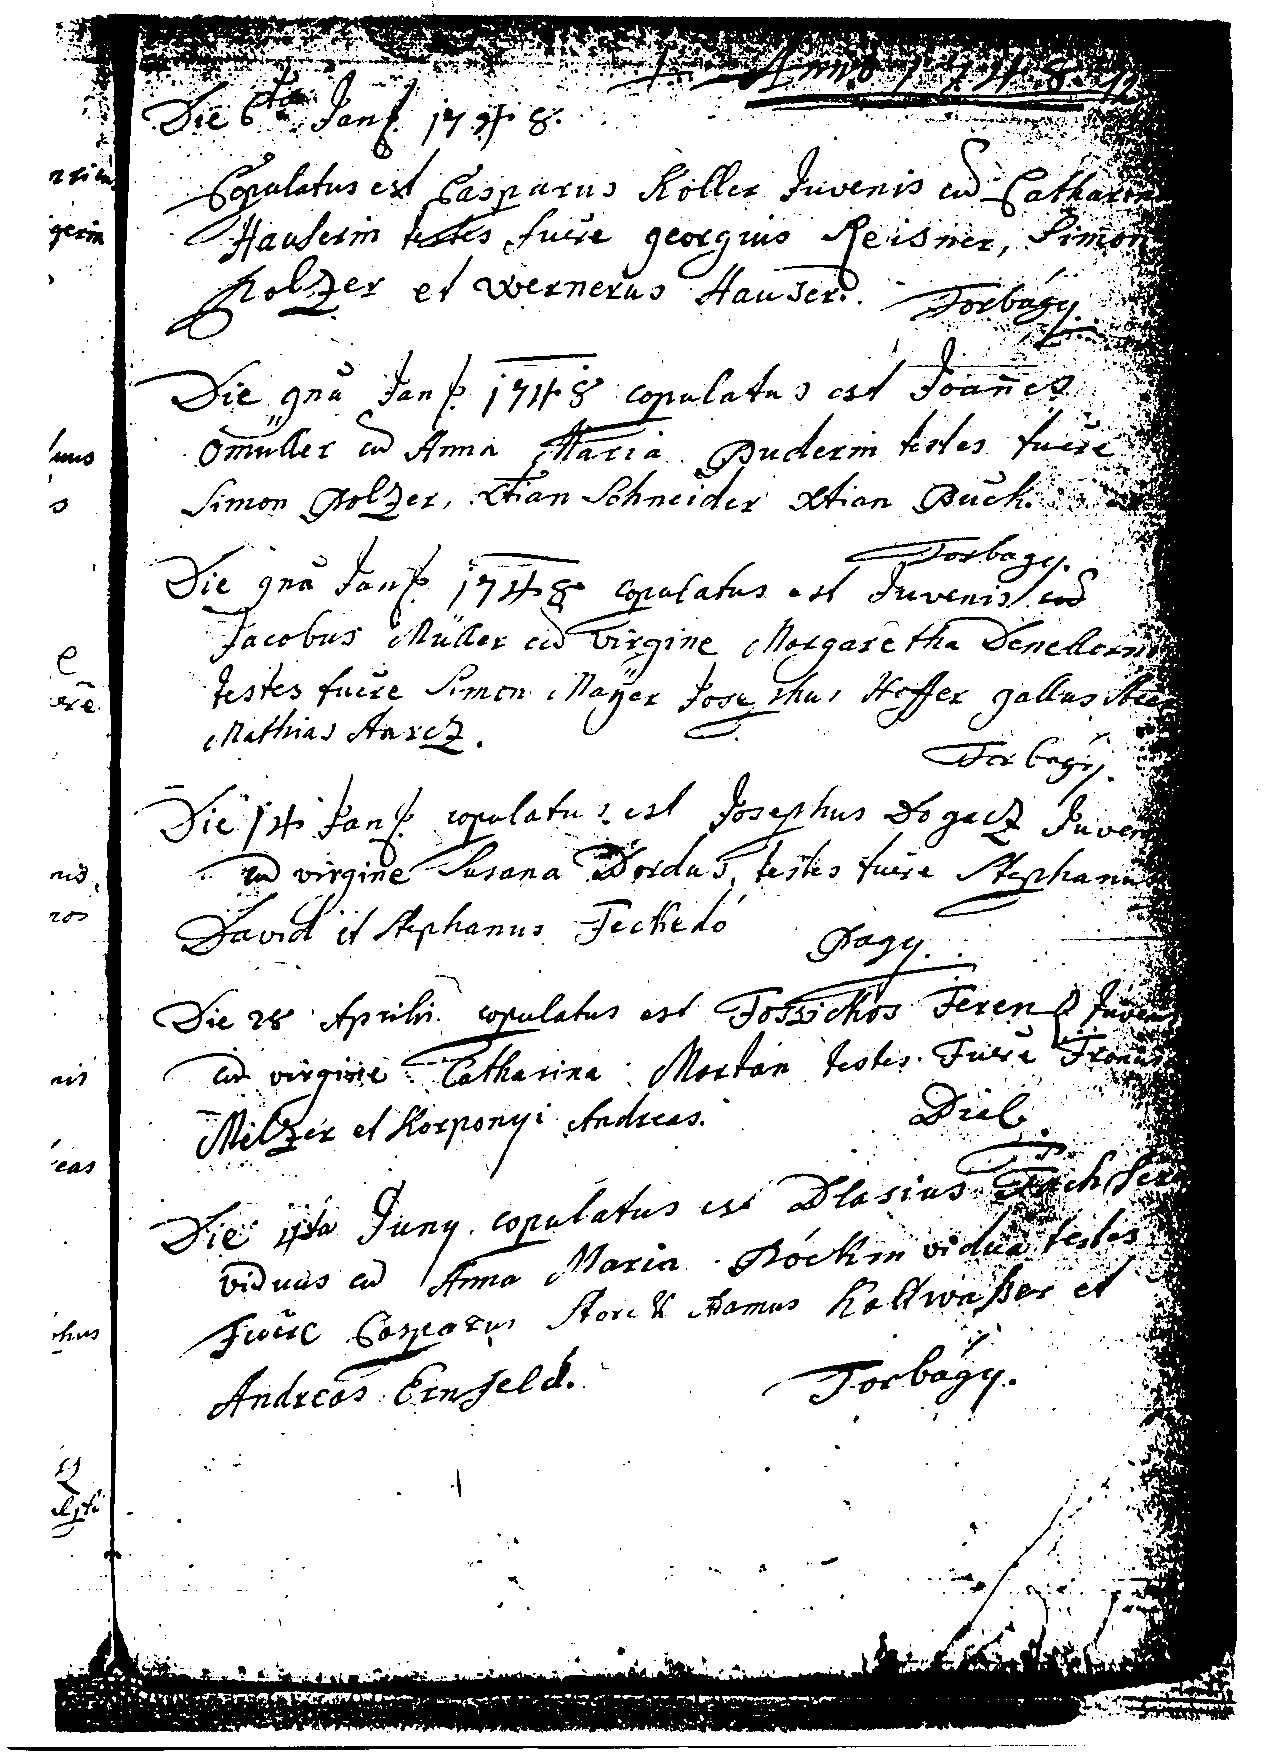 Anno 1748.
Die 6ta Jan. 1748.
Copulatus est Casparus Koller Juvenis cu Catharin
Hauserin testes fuere georgius Reisner, Simon
Polzer et Wernerus Hauser.
Torbagy.
Die 9na Jan. 1748 copulatus est Joanes
Omuller cu Anna Maria Puderin testes fuere
Simon Polzer, Xtian Schneider Xtian Puck.
Torbagy.
Die 9na Jan. 1748 copulatus est Juvenis
Jacobus Müller cu virgine Margaretha
testes fuere Simon Mayer Josephus Hoffer gallus
Mathias
Torbagy.
Die 14 Jan. copulatus est Josephus Juven
cu virgine Susana testes fuere Stephanus
David et Stephanus Feckedó
Pagy.
Die 28 Aprilis copulatus est Ferenz Juvenis
cu virgine Catharina testes Fuere
Melzer et Korponyi Andreas.
Die 4ta Juny copulatus est Blasius
viduus cu Anna Maria Böckin vidua testes
Fuere Casparus Storck Adamus Kaltwaßer et
Andreas Ernfeld.
Torbagy.
nis
eas